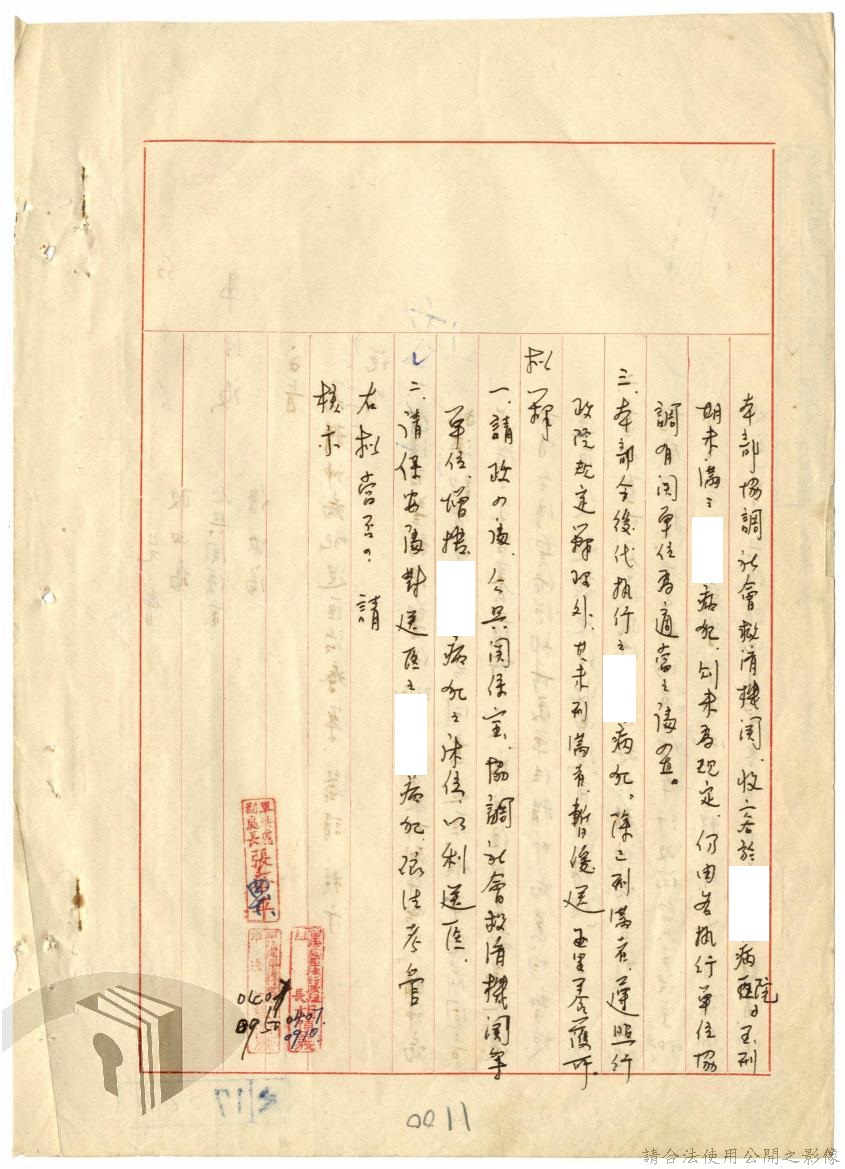 本部協調社會救濟機關、收容於 病醫院。至刑
期未滿之 病犯、則未有規定、仍由各執行單位協
調有關單位為適當之處置。
三、本部今後代執行之 病犯。除已刑滿者、遵照行
政院規定辦理外、其未刑滿者、暫緩送玉里養護所。
擬辦
一、請政四處、公共關係室、協調社會救濟機關等
單位、增撥 病犯之床位、以利送医。
二、請保安處對送医之 病犯、依法考管
右擬當否?請
核示
軍法處
副處長 張
組長
0407
0950
0407
0910
0011
請合法使用公開之影像